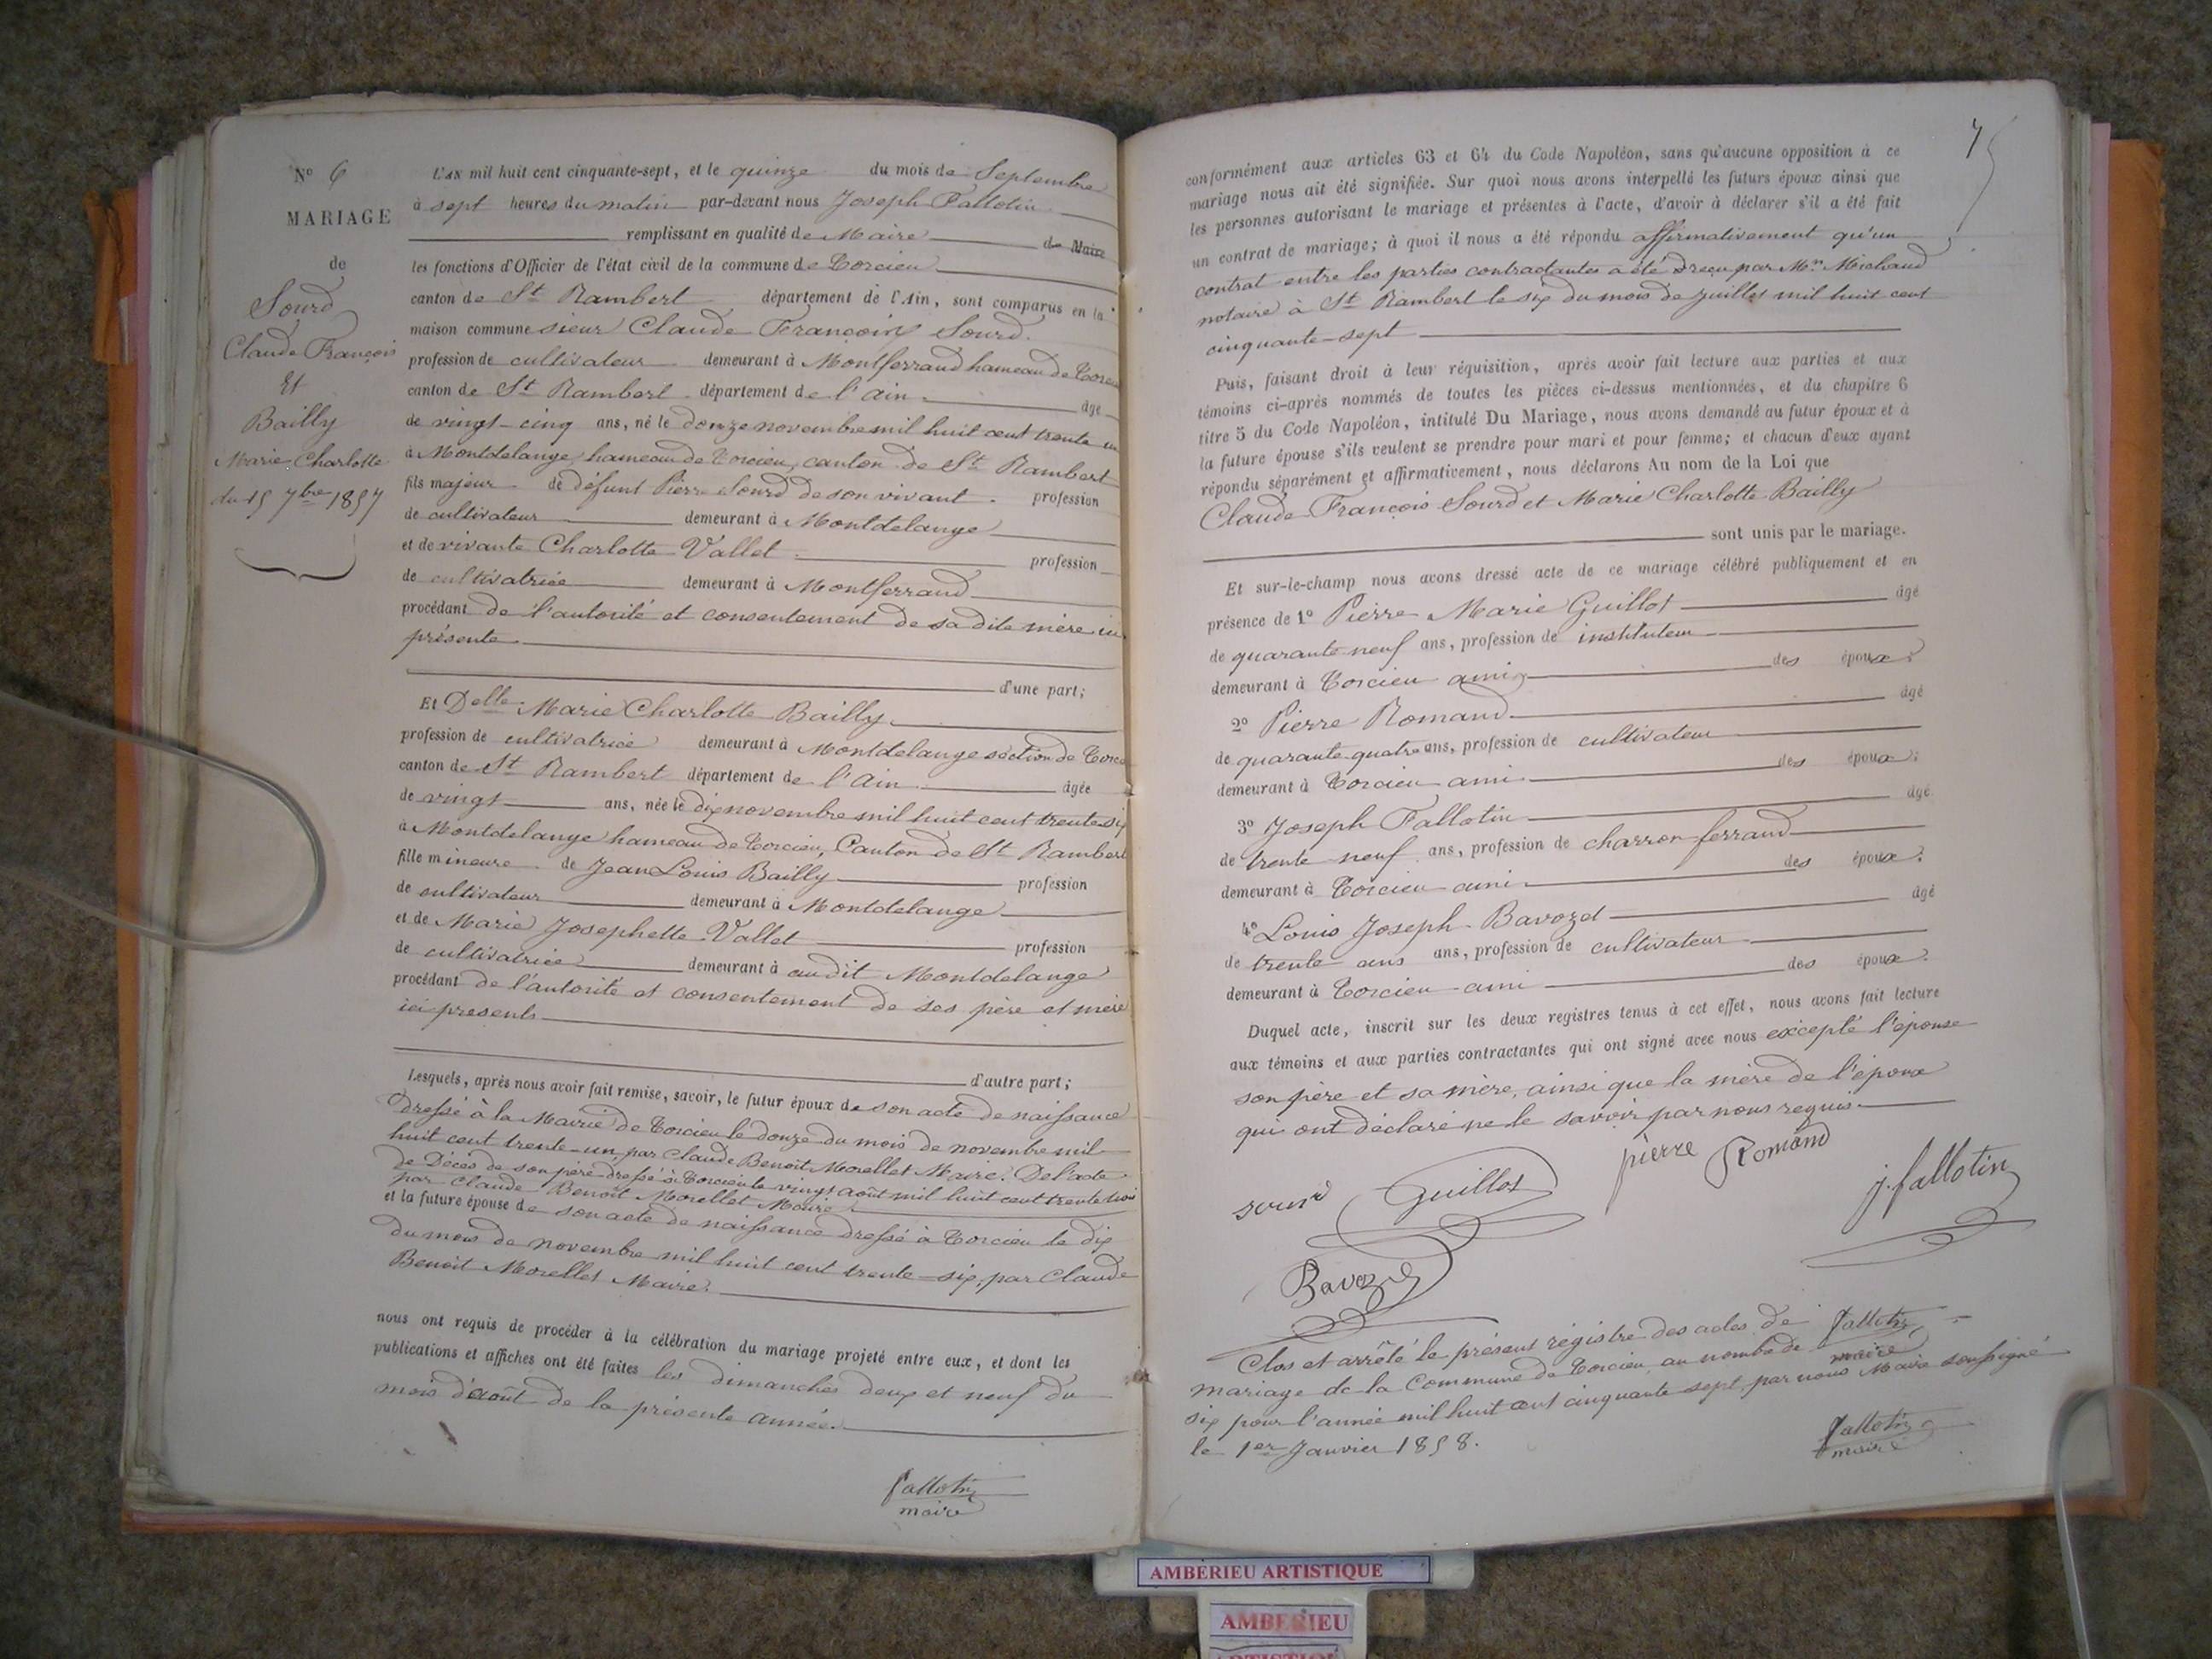 N° 6
MARIAGE
de
Sourd
Claude François
Et
Bailly
Marie Charlotte
du 15 7bre 1857
L'AN mil huit cent cinquante-sept, et le quinze du mois de Septembre
à sept heures du matin par-devant nous Joseph Fallotin
remplissant en qualité de Maire de Maire
les fonctions d'Officier de l'état civil de la commune de Torcieu
canton de St Rambert département de l'Ain, sont comparus en la
maison commune sieur Claude François Sourd
profession de cultivateur demeurant à Montferrand hameau de Torcieu
canton de St Rambert département de l'ain âgé
de vingt-cinq ans, né le douze novembre mil huit cent trente un
à Montdelange hameau de Torcieu, canton de St Rambert
fils majeur de défunt Pierre Sourd de son vivant profession
de cultivateur demeurant à Montdelange
et de vivante Charlotte Vallet profession
de cultivatrice demeurant à Montferrand
procédant de l'autorité et consentement de sa dite mère ici
présente
d'une part;
Et Delle Marie Charlotte Bailly
profession de cultivatrice demeurant à Montdelange section de Torcieu
canton de St Rambert département de l'ain âgée
de vingt ans, née le dix novembre mil huit cent trente six
à Montdelange hameau de Torcieu, Canton de St Rambert
fille mineure de Jean Louis Bailly profession
de cultivateur demeurant à Montdelange
et de Marie Josephette Vallet profession
de cultivatrice demeurant à audit Montdelange
procédant de l'autorité et consentement de ses père et mère
ici presents
d'autre part;
Lesquels, après nous avoir fait remise, savoir, le futur époux de son acte de naissance
dressé à la Mairie de Torcieu le douze du mois de novembre mil
huit cent trente-un, par Claude Benoit Morellet Maire. De l'acte
de Décès de son père dressé à Torcieu le vingt août mil huit cent trente trois
par Claude Benoit Morellet Maire
et la future épouse de son acte de naissance dressé à Torcieu le dix
du mois de novembre mil huit cent trente-six, par Claude
Benoit Morellet Maire.
nous ont requis de procéder à la célébration du mariage projeté entre eux, et dont les
publications et affiches ont été faites les dimanches deux et neuf du
mois d'août de la présente année.
fallotin
maire
7
conformément aux articles 63 et 64 du Code Napoléon, sans qu'aucune opposition à ce
mariage nous ait été signifiée. Sur quoi nous avons interpellé les futurs époux ainsi que
les personnes autorisant le mariage et présentes à l'acte, d'avoir à déclarer s'il a été fait
un contrat de mariage; à quoi il nous a été répondu affirmativement qu'un
contrat entre les parties contractantes a été dreçu par Mn Michaud
notaire à St Rambert le six du mois de juillet mil huit cent
cinquante-sept
Puis, faisant droit à leur réquisition, après avoir fait lecture aux parties et aux
témoins ci-après nommés de toutes les pièces ci-dessus mentionnées, et du chapitre 6
titre 5 du Code Napoléon, intitulé Du Mariage, nous avons demandé au futur époux et à
la future épouse s'ils veulent se prendre pour mari et pour femme; et chacun d'eux ayant
répondu séparément et affirmativement, nous déclarons Au nom de la Loi que
Claude François Sourd et Marie Charlotte Bailly
sont unis par le mariage.
Et sur-le-champ nous avons dressé acte de ce mariage célébré publiquement et en
présence de 1° Pierre Marie Guillot âgé
de quarante neuf ans, profession de instituteur
demeurant à Torcieu ami des époux.
2° Pierre Romand âgé
de quarante quatre ans, profession de cultivateur
demeurant à Torcieu ami des époux.
3° Joseph Fallotin âgé
de trente neuf ans, profession de charron ferrand
demeurant à Torcieu ami des époux.
4° Louis Joseph Bavozet âgé
de trente ans ans, profession de cultivateur
demeurant à Torcieu ami des époux.
Duquel acte, inscrit sur les deux registres tenus à cet effet, nous avons fait lecture
aux témoins et aux parties contractantes qui ont signé avec nous excepté l'épouse
son père et sa mère, ainsi que la mère de l'époux
qui ont déclaré ne le savoir par nous requis.
sourd Guillot pierre Romand j. fallotin
Bavozet
Clos et arrêté le présent régistre des actes de fallotin
mariage de la Commune de Torcieu au nombre de maire
six pour l'année mil huit cent cinquante sept, par nous Maire soussigné
le 1er Janvier 1858.
fallotin
maire
AMBERIEU ARTISTIQUE
AMBERIEU
ARTISTIQUE